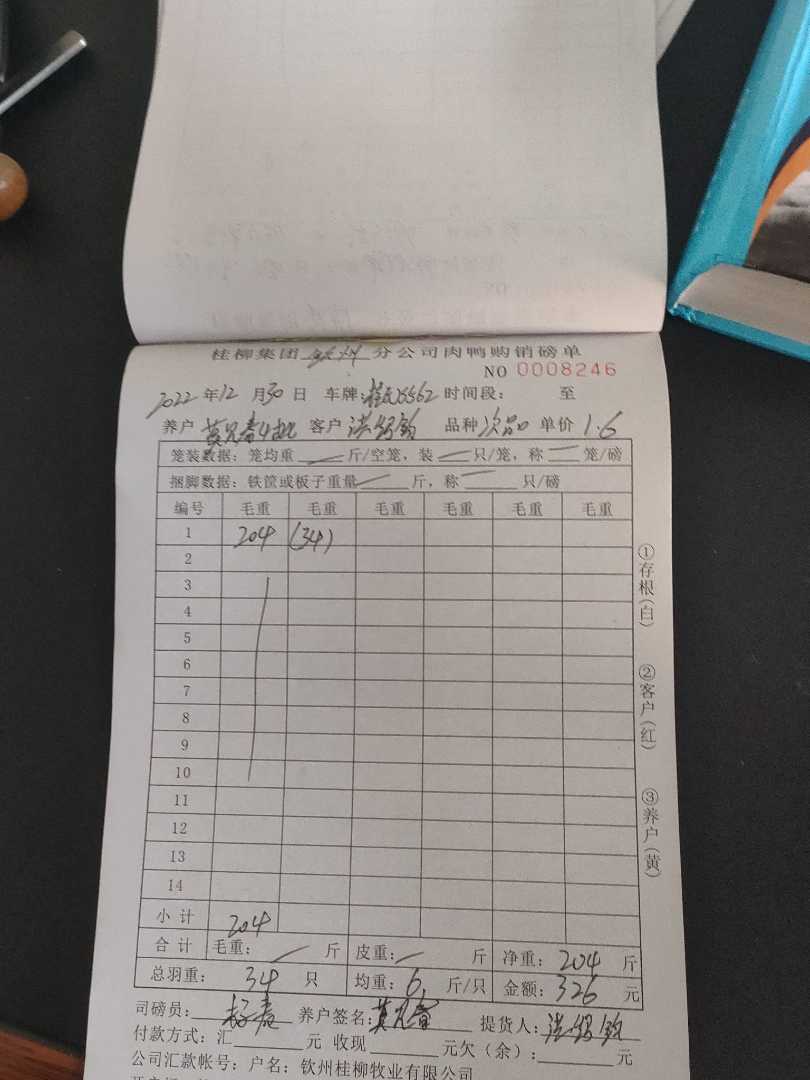 桂柳集团 钦州 分公司肉鸭购销磅单
NO 0008246
2022 年 12 月 30 日 车牌: 时间段: 至
养户 客户 品种 次品 单价 1.6
笼装数据: 笼均重 斤/空笼, 装 只/笼, 称 笼/磅
捆脚数据: 铁筐或板子重量 斤, 称 只/磅
编号 毛重 毛重 毛重 毛重 毛重 毛重
1 204 (34)
2
3
4
5
6
7
8
9
10
11
12
13
14
小计 204
合计 毛重: 斤 皮重: 斤 净重: 204 斤
总羽重: 34 只 均重: 6 斤/只 金额: 326 元
司磅员: 养户签名: 提货人:
付款方式: 汇 元 收现 元欠(余): 元
公司汇款帐号: 户名: 钦州桂柳牧业有限公司
①存根(白)
②客户(红)
③养户(黄)